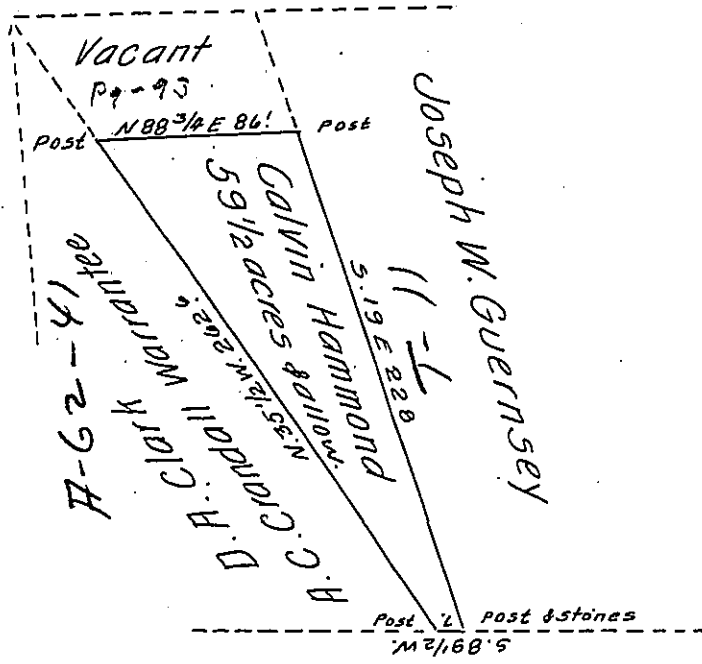 Vacant
Pg-93
Post
N 88 3/4 E 86!
Post
Joseph W. Guernsey
11-L
S. 19 E 228
Calvin Hammond
59 1/2 acres & allow.
N. 35 1/2 W. 262.6
A. C. Crandall Warrantee
D. A. Clark
A-62-41
Post
7.
Post & stones
S. 89 1/2 W.